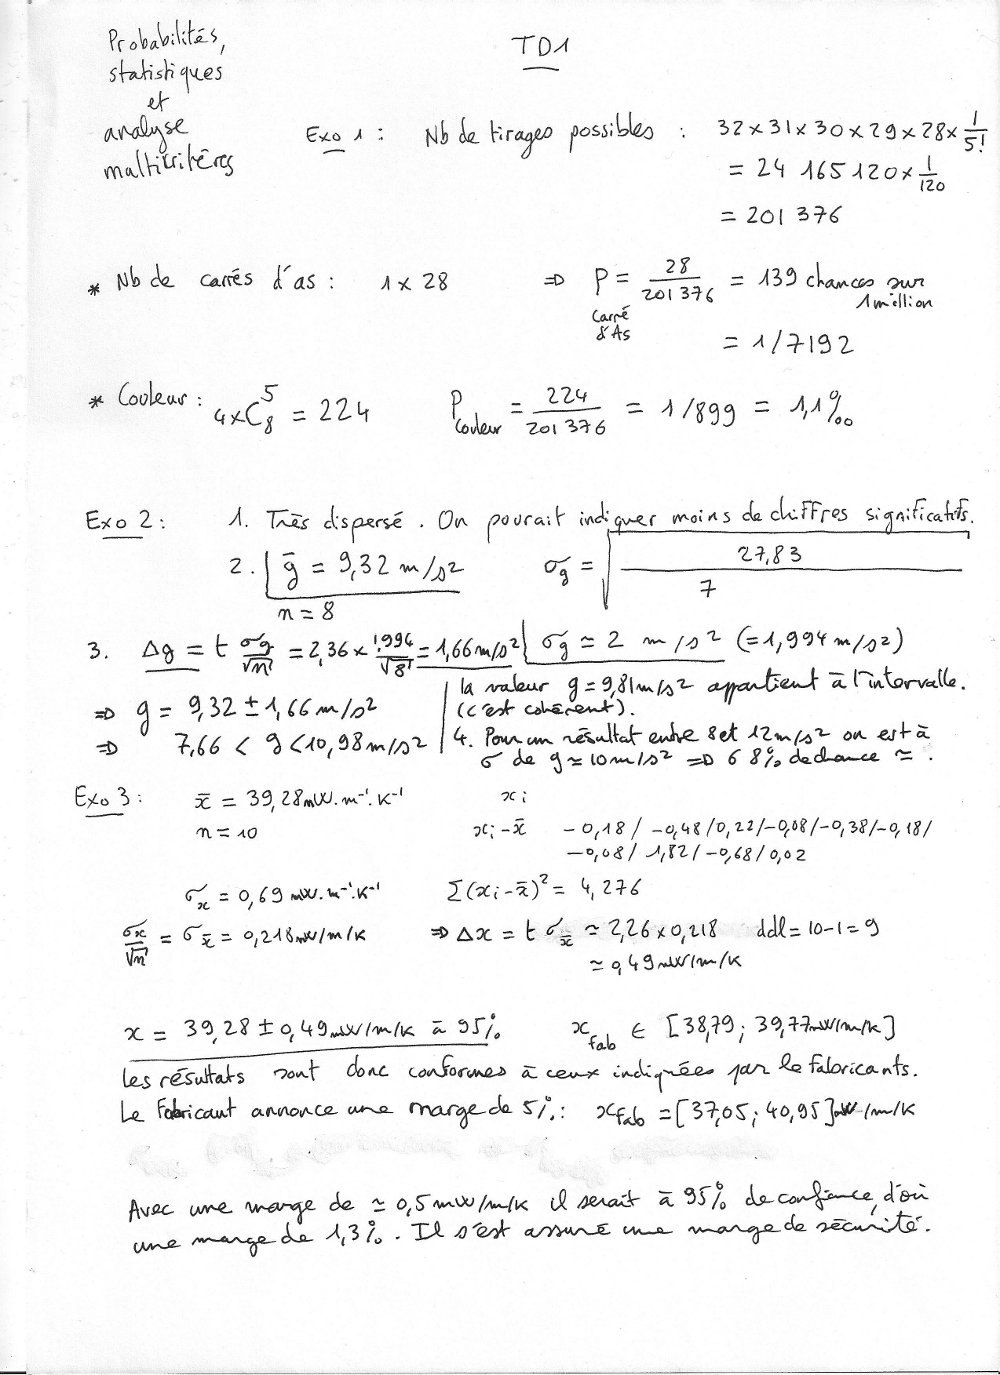 Probabilités,
statistiques
et
analyse
multicritères
TD1
Exo 1 : Nb de tirages possibles : 32 × 31 × 30 × 29 × 28 × 1/5!
= 24 165 120 × 1/120
= 201 376
* Nb de carrés d'as : 1 × 28 ⇒ P carré d'As = 28/201 376 = 139 chances sur 1 million
= 1/7192
* Couleur : 4×C₈⁵ = 224 P couleur = 224/201 376 = 1/899 = 1,1‰
Exo 2 : 1. Très dispersé. On pourait indiquer moins de chiffres significatifs.
2. ḡ = 9,32 m/s² σg = √(27,83/7)
n = 8
3. Δg = t σg/√n = 2,36 × 1,994/√8 = 1,66 m/s² σg ≃ 2 m/s² (= 1,994 m/s²)
⇒ g = 9,32 ± 1,66 m/s²
⇒ 7,66 < g < 10,98 m/s²
la valeur g = 9,81 m/s² appartient à l'intervalle.
(c'est cohérent).
4. Pour un résultat entre 8 et 12 m/s² on est à
σ de g ≃ 10 m/s² ⇒ 68% de chance ≃ .
Exo 3 : x̄ = 39,28 mW.m⁻¹.K⁻¹ xi
n = 10 xi - x̄ -0,18/ -0,48/0,22/-0,08/-0,38/-0,18/
-0,08/ 1,82/-0,68/0,02
σx = 0,69 mW.m⁻¹.K⁻¹ Σ(xi - x̄)² = 4,276
σx/√n = σx̄ = 0,218 mW/m/K ⇒ Δx = t σx̄ ≃ 2,26 × 0,218 ddl = 10-1 = 9
≃ 0,49 mW/m/K
x = 39,28 ± 0,49 mW/m/K à 95% xfab ∈ [38,79 ; 39,77 mW/m/K]
Les résultats sont donc conformes à ceux indiquées par le fabricants.
Le Fabricant annonce une marge de 5% : xfab = [37,05 ; 40,95] mW/m/K
Avec une marge de ≃ 0,5 mW/m/K il serait à 95% de confiance, d'où
une marge de 1,3%. Il s'est assuré une marge de sécurité.